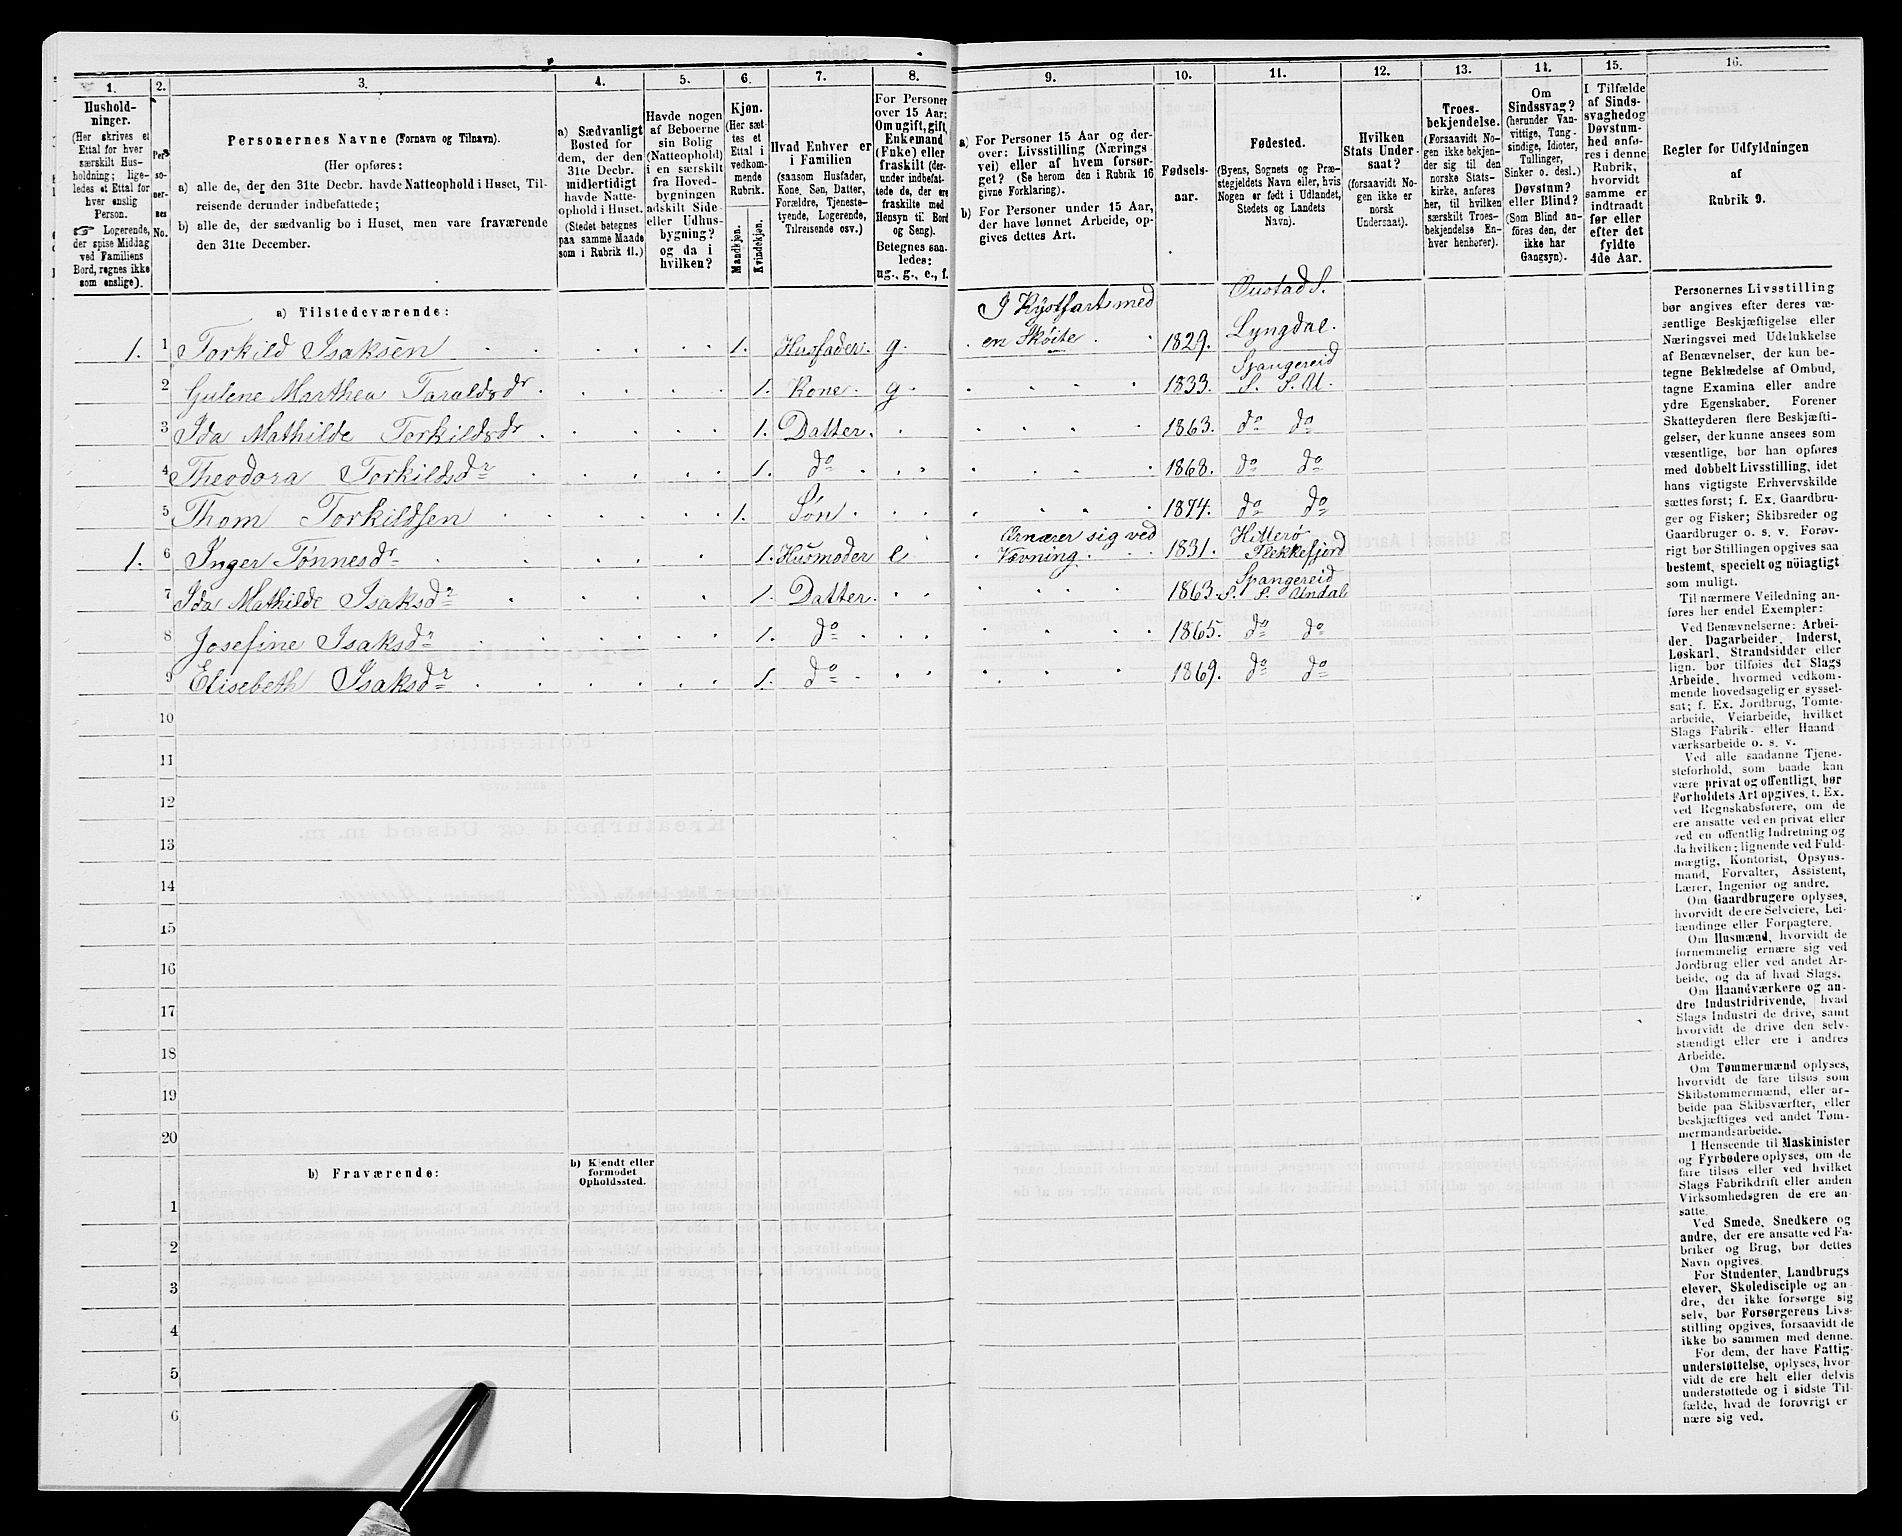 1.
Hushold-
ninger.
(Her skrives et
Ettal for hver
særskilt Hus-
holdning; lige-
ledes et Ettal for
hver enslig
Person.
☞ Logerende,
der spise Middag
ved Familiens
Bord, regnes ikke
som enslige).
2.
Per-
so-
ner-
nes
No.
3.
Personernes Navne (Fornavn og Tilnavn).
(Her opføres:
a) alle de, der den 31te Decbr. havde Natteophold i Huset, Til-
reisende derunder indbefattede;
b) alle de, der sædvanlig bo i Huset, men vare fraværende
den 31te December.
4.
a) Sædvanligt
Bosted for
dem, der den
31te Decbr.
midlertidigt
havde Natte-
ophold i Huset.
(Stedet betegnes
paa samme Maade
som i Rubrik 11.)
5.
Havde nogen
af Beboerne
sin Bolig
(Natteophold)
i en særskilt
fra Hoved-
bygningen
adskilt Side-
eller Udhus-
bygning?
og da i
hvilken?
6.
Kjøn.
(Her sæt-
tes et
Ettal i
vedkom-
mende
Rubrik.
Mandkjøn.
Kvindekjøn.
7.
Hvad Enhver er
i Familien
(saasom Husfader,
Kone, Søn, Datter,
Forældre, Tjeneste-
tyende, Logerende,
Tilreisende osv.)
8.
For Personer
over 15 Aar:
Om ugift, gift,
Enkemand
(Enke) eller
fraskilt (der-
under indbefat-
tede de, der ere
fraskilte med
Hensyn til Bord
og Seng).
Betegnes saa-
ledes:
ug., g., e., f.
9.
a) For Personer 15 Aar og der-
over: Livsstilling (Nærings-
vei) eller af hvem forsør-
get? (Se herom den i Rubrik 16
givne Forklaring).
b) For Personer under 15 Aar,
der have lønnet Arbeide, op-
gives dettes Art.
10.
Fødsels-
aar.
11.
Fødested.
(Byens, Sognets og Præ-
stegjeldets Navn eller, hvis
Nogen er født i Udlandet,
Stedets og Landets
Navn).
12.
Hvilken
Stats Under-
saat?
(forsaavidt No-
gen ikke er
norsk
Undersaat).
13.
Troes-
bekjendelse.
(Forsaavidt No-
gen ikke bekjen-
der sig til den
norske Stats-
kirke, anføres
her, til hvilken
særskilt Troes-
bekjendelse En-
hver henhører).
14.
Om
Sindssvag?
(herunder Van-
vittige, Tung-
sindige, Idioter,
Tullinger,
Sinker o. desl.)
Døvstum?
eller Blind?
(Som Blind an-
føres den, der
ikke har
Gangsyn).
15.
I Tilfælde
af Sinds-
svaghed og
Døvstum-
hed anfø-
res i denne
Rubrik,
hvorvidt
samme er
indtraadt
før eller
efter det
fyldte
4de Aar.
16.
Regler for Udfyldningen
af
Rubrik 9.
a) Tilstedeværende:
1. 1 Torkild Isaksen 1. Husfader. g. I Kystfart med en Skøite 1829. Qustad S. Lyngdal.
2 Gulene Marthea Taraldsdr 1. Kone. g 1833. Spangereid S. S. U.
3 Ida Mathilde Torkildsdr 1. Datter. 1863. do do
4 Theodora Torkildsdr 1. do 1868. do do
5 Thom Torkildsen 1. Søn 1874. do do
1. 6 Inger Tønnesdr 1. Husmoder e Ernærer sig ved Vævning. 1831. Hitterø Flekkefjord
7 Ida Mathilde Isaksdr 1. Datter. 1863. Spangereid S. S. Undal
8 Josefine Isaksdr 1. do 1865. do do
9 Elisebeth Isaksdr 1. do 1869. do do
10
11
12
13
14
15
16
17
18
19
20
b) Fraværende:
b) Kjendt eller
formodet
Opholdssted.
1
2
3
4
5
6
Personernes Livsstilling
bør angives efter deres væ-
sentlige Beskjæftigelse eller
Næringsvei med Udelukkelse
af Benævnelser, der kun be-
tegne Beklædelse af Ombud,
tagne Examina eller andre
ydre Egenskaber. Forener
Skatteyderen flere Beskjæfti-
gelser, der kunne ansees som
væsentlige, bør han opføres
med dobbelt Livsstilling, idet
hans vigtigste Erhvervskilde
sættes først; f. Ex. Gaardbru-
ger og Fisker; Skibsreder og
Gaardbruger o. s. v. Forøv-
rigt bør Stillingen opgives saa
bestemt, specielt og nøiagtigt
som muligt.
Til nærmere Veiledning an-
føres her endel Exempler:
Ved Benævnelserne: Arbei-
der, Dagarbeider, Inderst,
Løskarl, Strandsidder eller
lign. bør tilføies det Slags
Arbeide, hvormed vedkom-
mende hovedsagelig er syssel-
sat; f. Ex. Jordbrug, Tomte-
arbeide, Veiarbeide, hvilket
Slags Fabrik- eller Haand-
værksarbeide o. s. v.
Ved alle saadanne Tjene-
steforhold, som baade kan
være privat og offentligt, bør
Forholdets Art opgives, t. Ex.
ved Regnskabsførere, om de
ere ansatte ved en privat eller
ved en offentlig Indretning og
da hvilken; lignende ved Fuld-
mægtig, Kontorist, Opsyns-
mand, Forvalter, Assistent,
Lærer, Ingeniør og andre.
Om Gaardbrugere oplyses,
hvorvidt de ere Selveiere, Lei-
lændinge eller Forpagtere.
Om Husmænd, hvorvidt de
fornemmelig ernære sig ved
Jordbrug eller ved andet Ar-
beide, og da af hvad Slags.
Om Haandværkere og an-
dre Industridrivende, hvad
Slags Industri de drive, samt
hvorvidt de drive den selv-
stændigt eller ere i andres
Arbeide.
Om Tømmermænd oplyses,
hvorvidt de fare tilsøs som
Skibstømmermænd, eller ar-
beide paa Skibsværfter, eller
beskjæftiges ved andet Tøm-
mermandsarbeide.
I Henseende til Maskinister
og Fyrbødere oplyses, om de
fare tilsøs eller ved hvilket
Slags Fabrikdrift eller anden
Virksomhedsgren de ere an-
satte.
Ved Smede, Snedkere og
andre, der ere ansatte ved Fa-
briker og Brug, bør dettes
Navn opgives.
For Studenter, Landbrugs-
elever, Skoledisciple og an-
dre, der ikke forsørge sig
selv, bør Forsørgerens Livs-
stilling opgives, forsaavidt de
ikke bo sammen med denne.
For dem, der have Fattig-
understøttelse, oplyses, hvor-
vidt de ere helt eller delvis
understøttede og i sidste Til-
fælde, hvad de forøvrigt er-
nære sig ved.